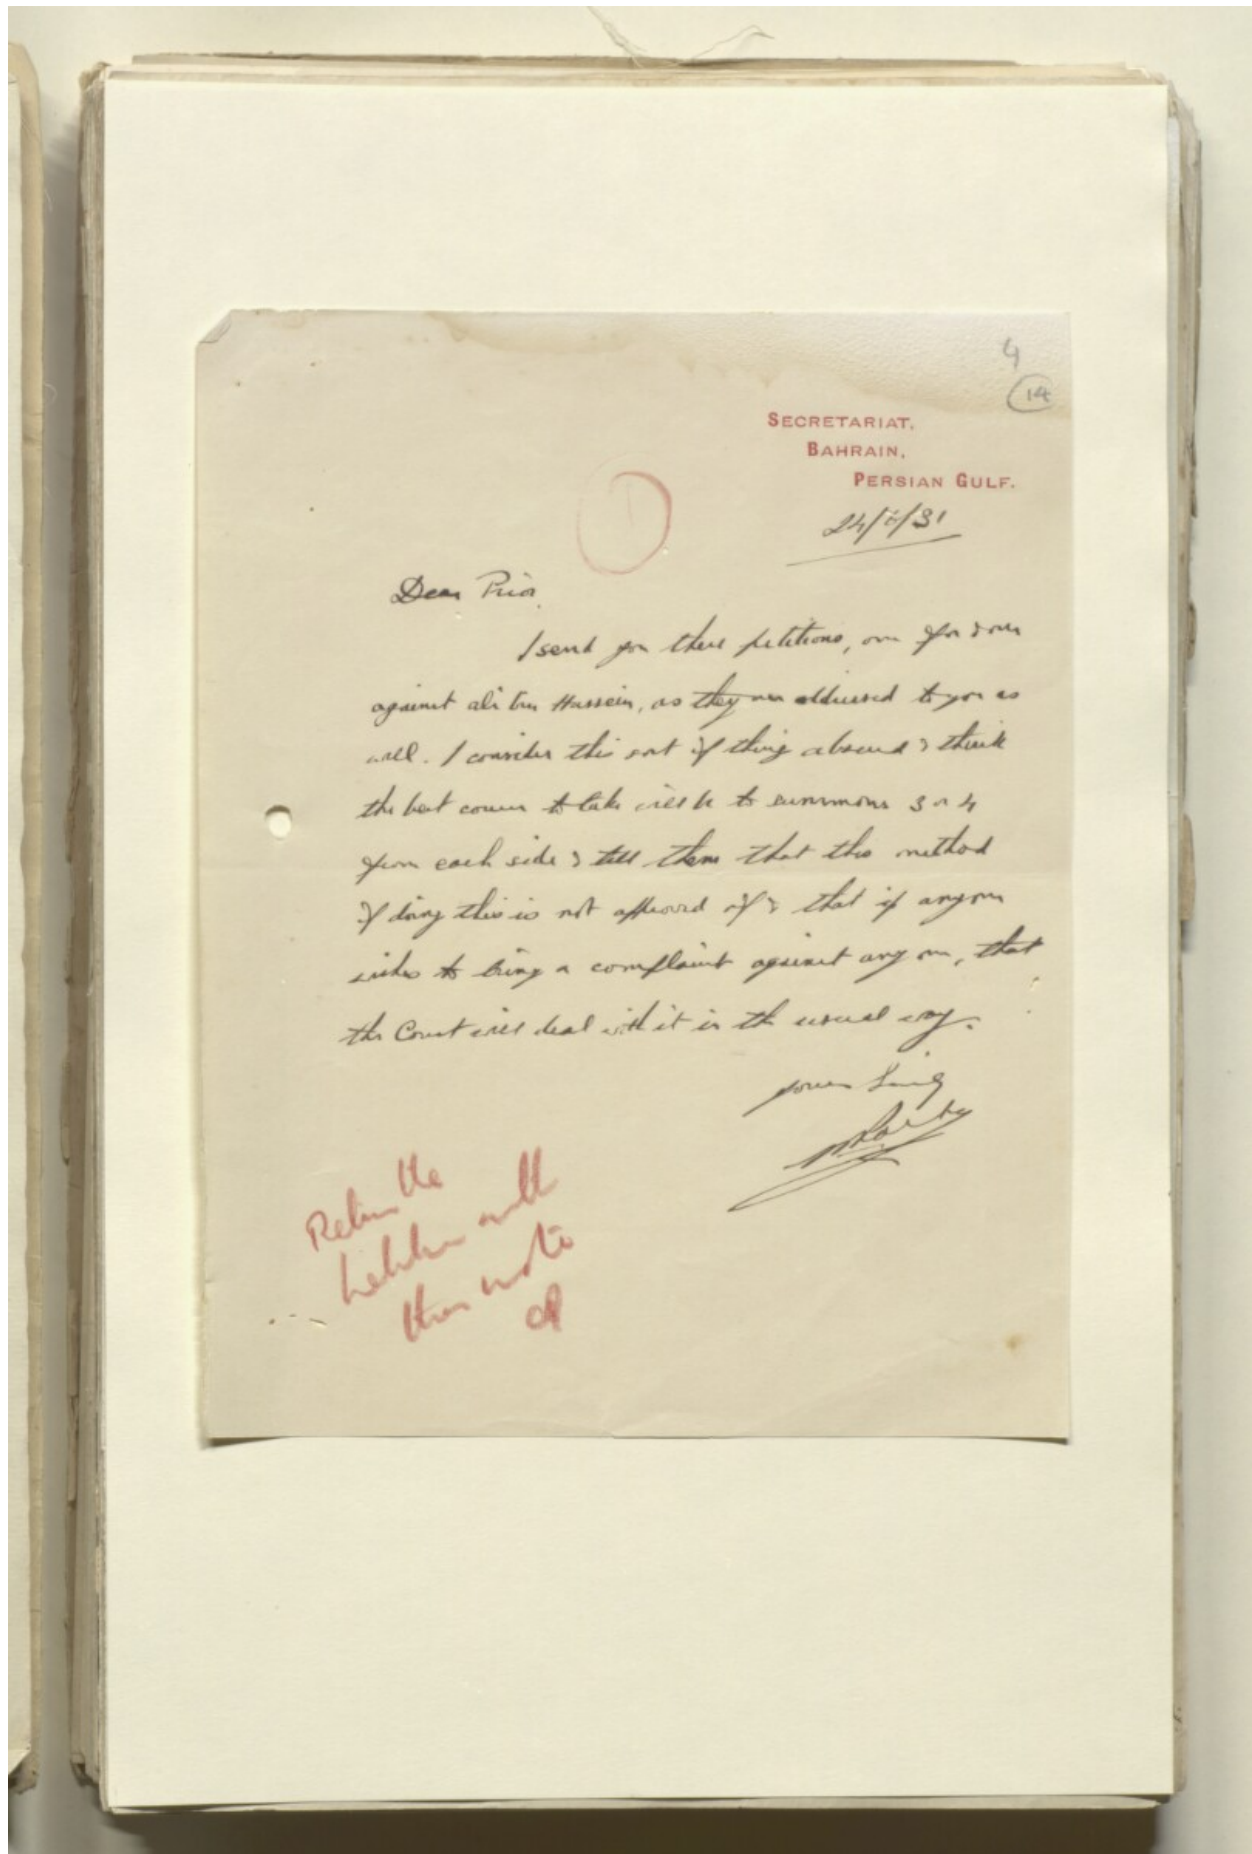 4
14
SECRETARIAT,
BAHRAIN,
PERSIAN GULF.
1
24/ /31
Dear Prior
I send you these petitions, one for & one
against Ali bin Hassein, as they are addressed to you as
well. I consider this sort of thing absurd & think
the best course to take will be to summons 3 or 4
from each side & tell them that this method
of doing this is not approved of & that if anyone
wishes to bring a complaint against any one, that
the Court will deal with it in the usual way.
yours
Return the
petition with
this note